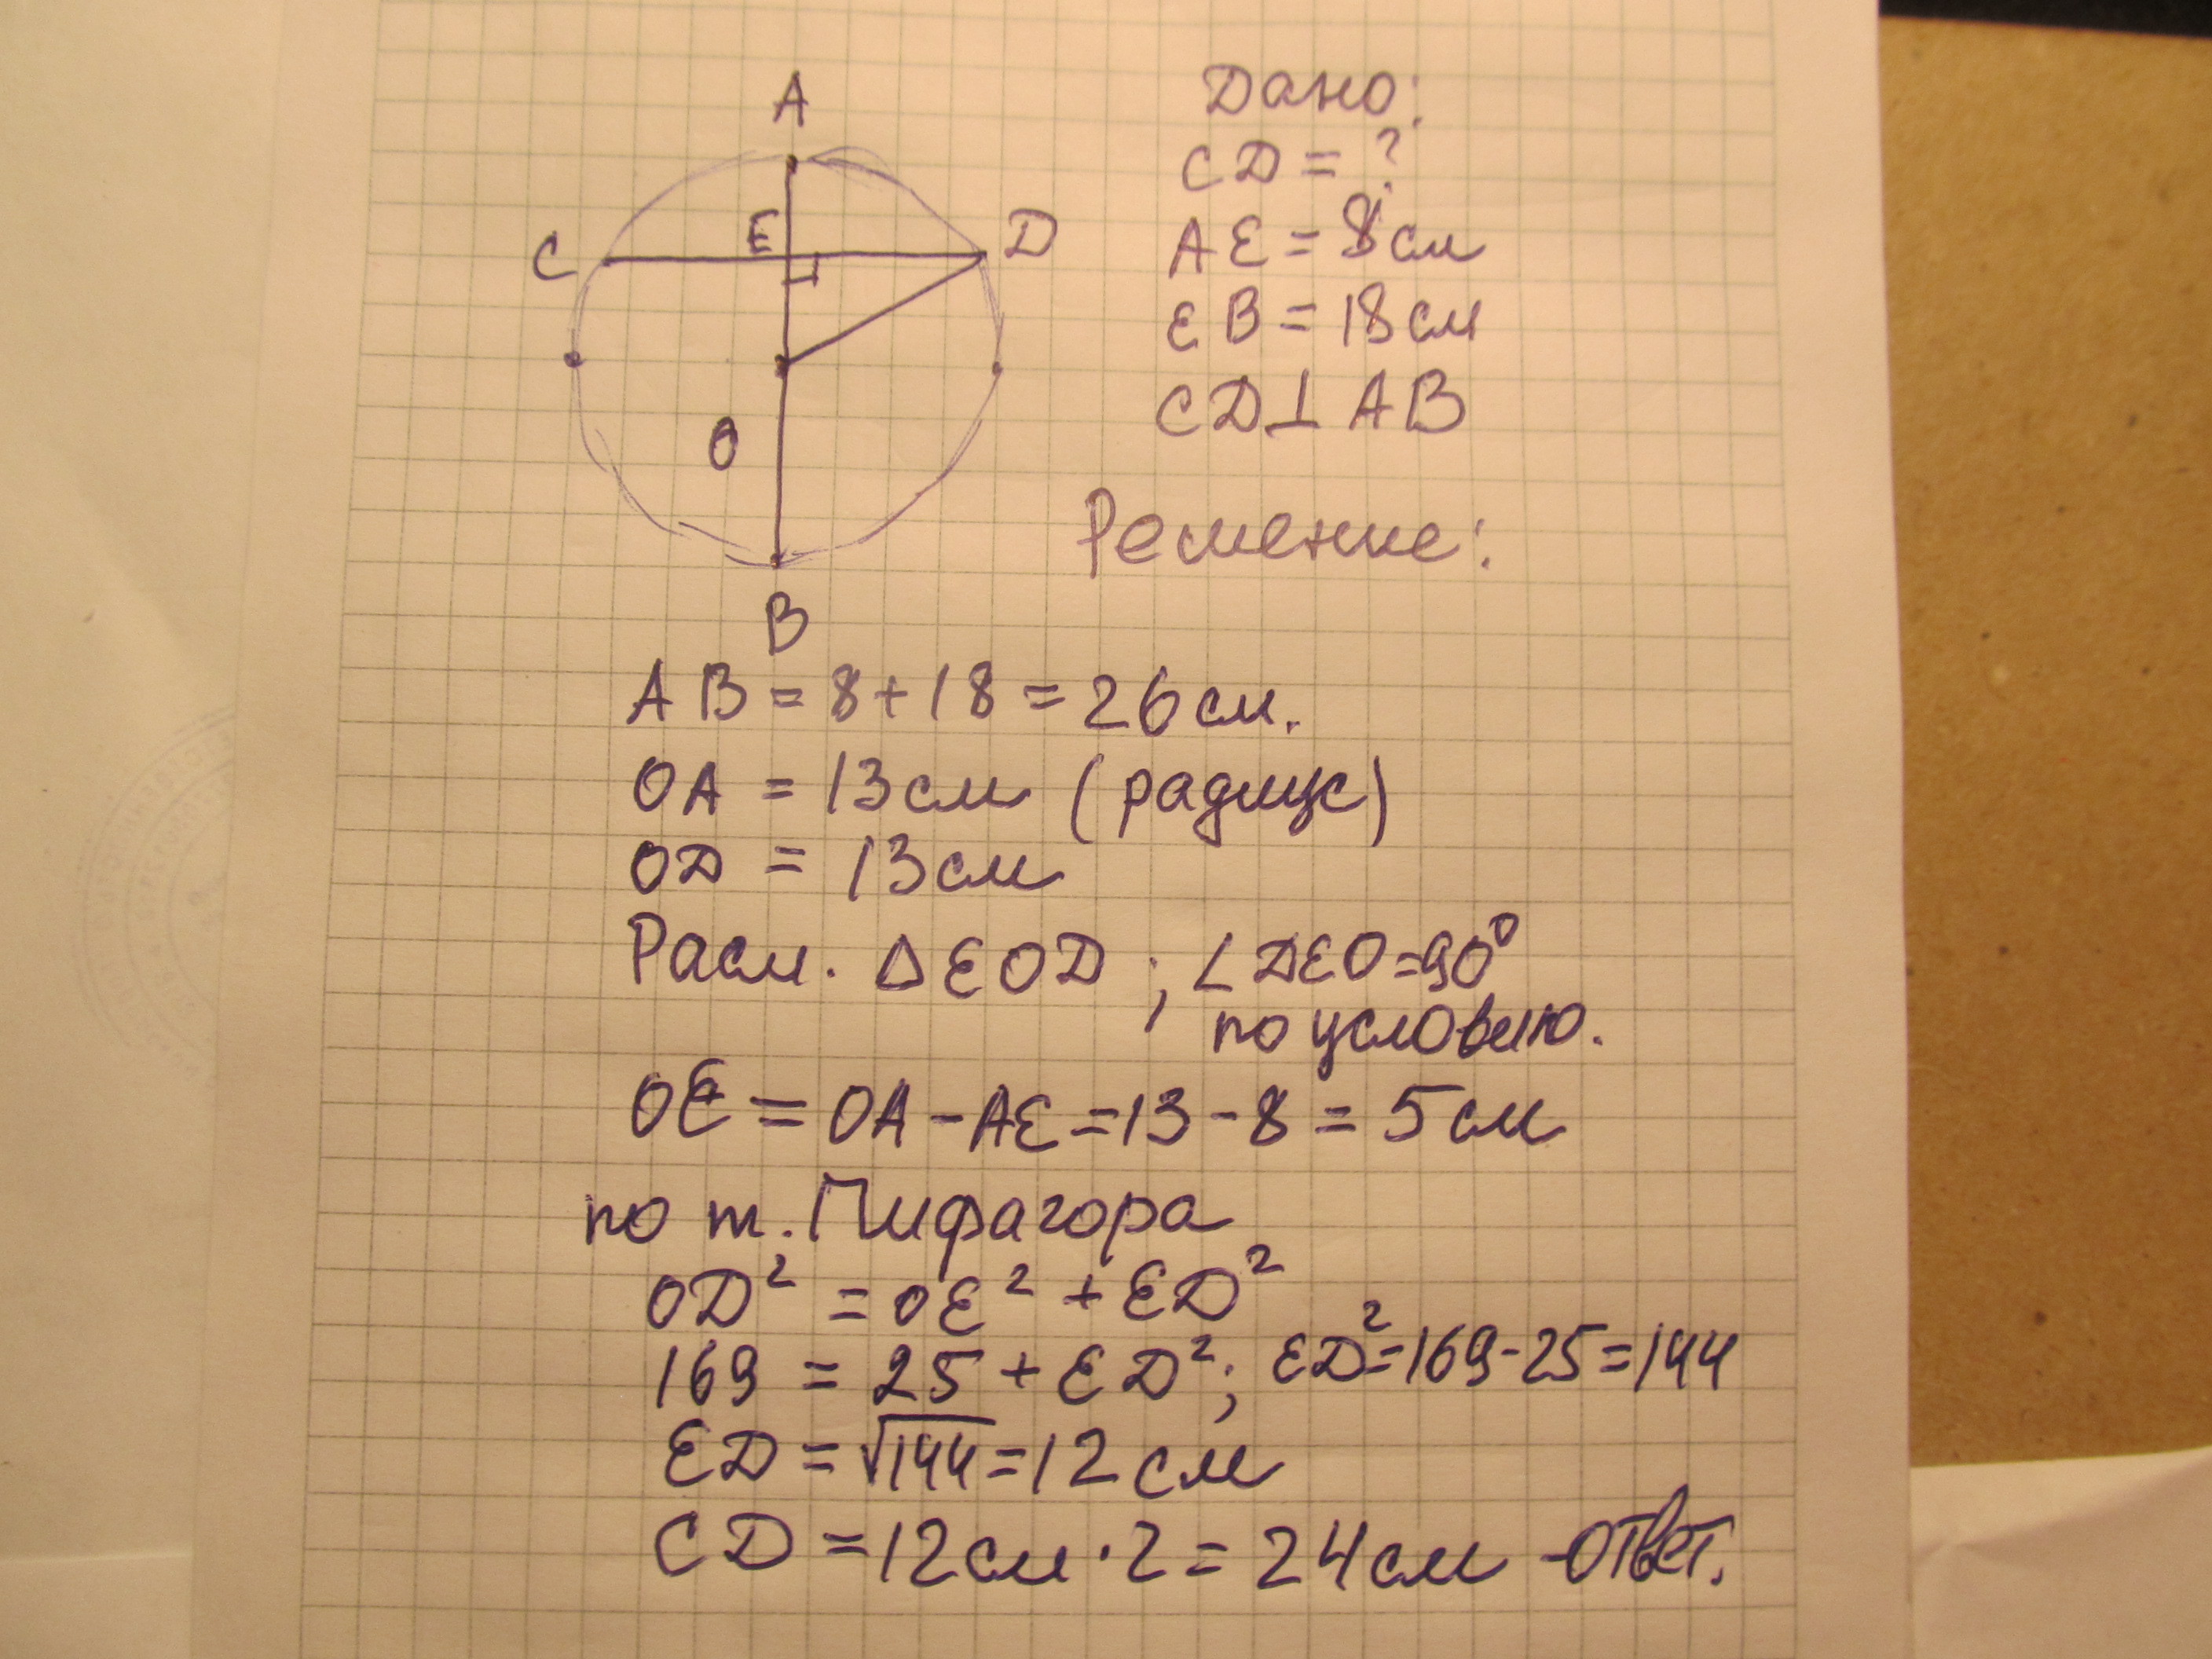 A
E
C
D
O
B
Дано:
CD = ?
AE = 8 см
EB = 18 см
CD⊥AB
Решение:
AB = 8+18 = 26 см.
OA = 13 см (радиус)
OD = 13 см
Расм. ΔEOD ; ∠DEO=90°
по условию.
OE = OA - AE = 13 - 8 = 5 см
по т. Пифагора
OD² = OE² + ED²
169 = 25 + ED²; ED²=169-25=144
ED = √144 = 12 см
CD = 12 см · 2 = 24 см - ответ.